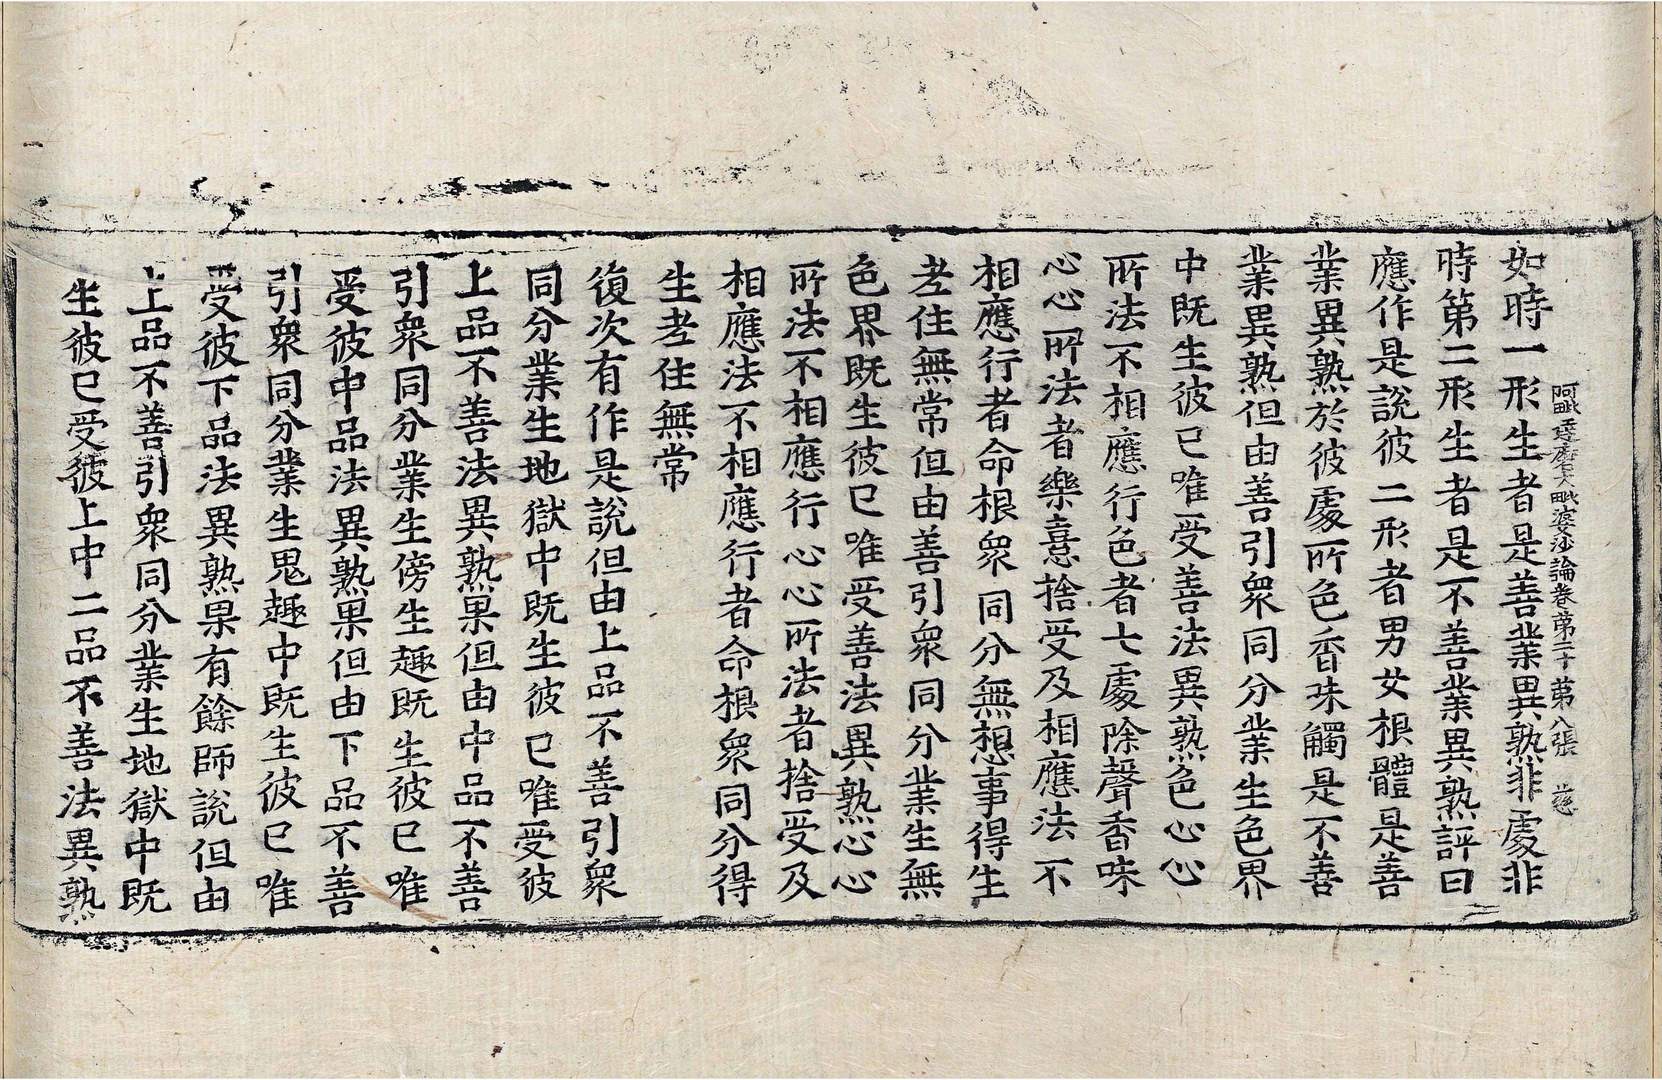 阿毗達磨大毗婆沙論卷第二十 第八張 慈
如時一形生者是善業異熟非處非
時第二形生者是不善業異熟評曰
應作是說彼二形者男女根體是善
業異熟於彼處所色香味觸是不善
業異熟但由善引衆同分業生色界
中既生彼已唯受善法異熟色心心
所法不相應行色者七處除聲香味
心心所法者樂喜捨受及相應法不
相應行者命根衆同分無想事得生
老住無常但由善引衆同分業生無
色界既生彼已唯受善法異熟心心
所法不相應行心心所法者捨受及
相應法不相應行者命根衆同分得
生老住無常
復次有作是說但由上品不善引衆
同分業生地獄中既生彼已唯受彼
上品不善法異熟果但由中品不善
引衆同分業生傍生趣既生彼已唯
受彼中品法異熟果但由下品不善
引衆同分業生鬼趣中既生彼已唯
受彼下品法異熟果有餘師說但由
上品不善引衆同分業生地獄中既
生彼已受彼上中二品不善法異熟